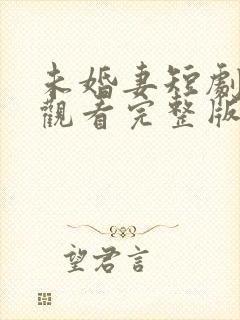 未婚妻短劇
觀看完整版
望君言